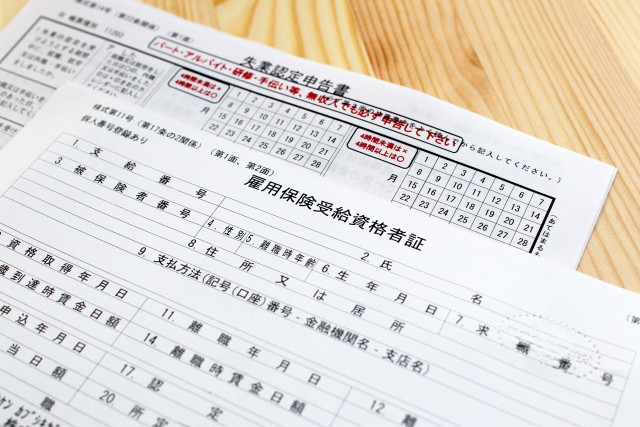 様式第14号（第22条関係）（第1面）
※ 帳票種別 11203
失業認定申告書
パート・アルバイト・研修・手伝い等、無収入でも必ず申告して下さい
から記入してください。）
4時間未満は×
4時間以上は○
月
1 2 3 4 5 6 7
8 9 10 11 12 13 14
15 16 17 18 19 20 21
22 23 24 25 26 27 28
4時間未満は×
4時間以上は○
月
1 2 3 4 5 6 7
8 9 10 11 12 13 14
15 16 17 18 19 20 21
22 23 24 25 26 27 28
様式第11号（第17条の2関係）（第1面、第2面）
個人番号登録あり
雇用保険受給資格者証
1. 支給番号
2. 氏名
3. 被保険者番号
4. 性別
5. 離職時年齢
6. 生年月日
7. 求職番号
8. 住所又は居所
9. 支払方法（記号（口座）番号 - 金融機関名 - 支店名）
資格取得年月日
11. 離職年月日
12. 離
歳到達時賃金日額
14. 離職時賃金日額
申込年月日
17. 認定
当日額
20. 所定